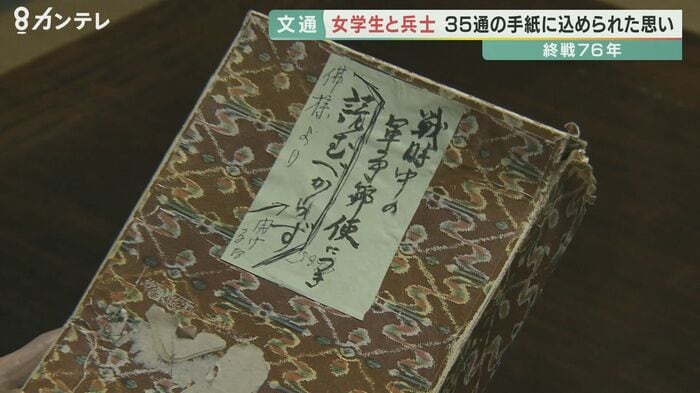 8カンテレ
文通 女学生と兵士 35通の手紙に込められた思い
終戦76年
戦時中の
軍事郵便につき
読むべからず
開け
るな
佛様より